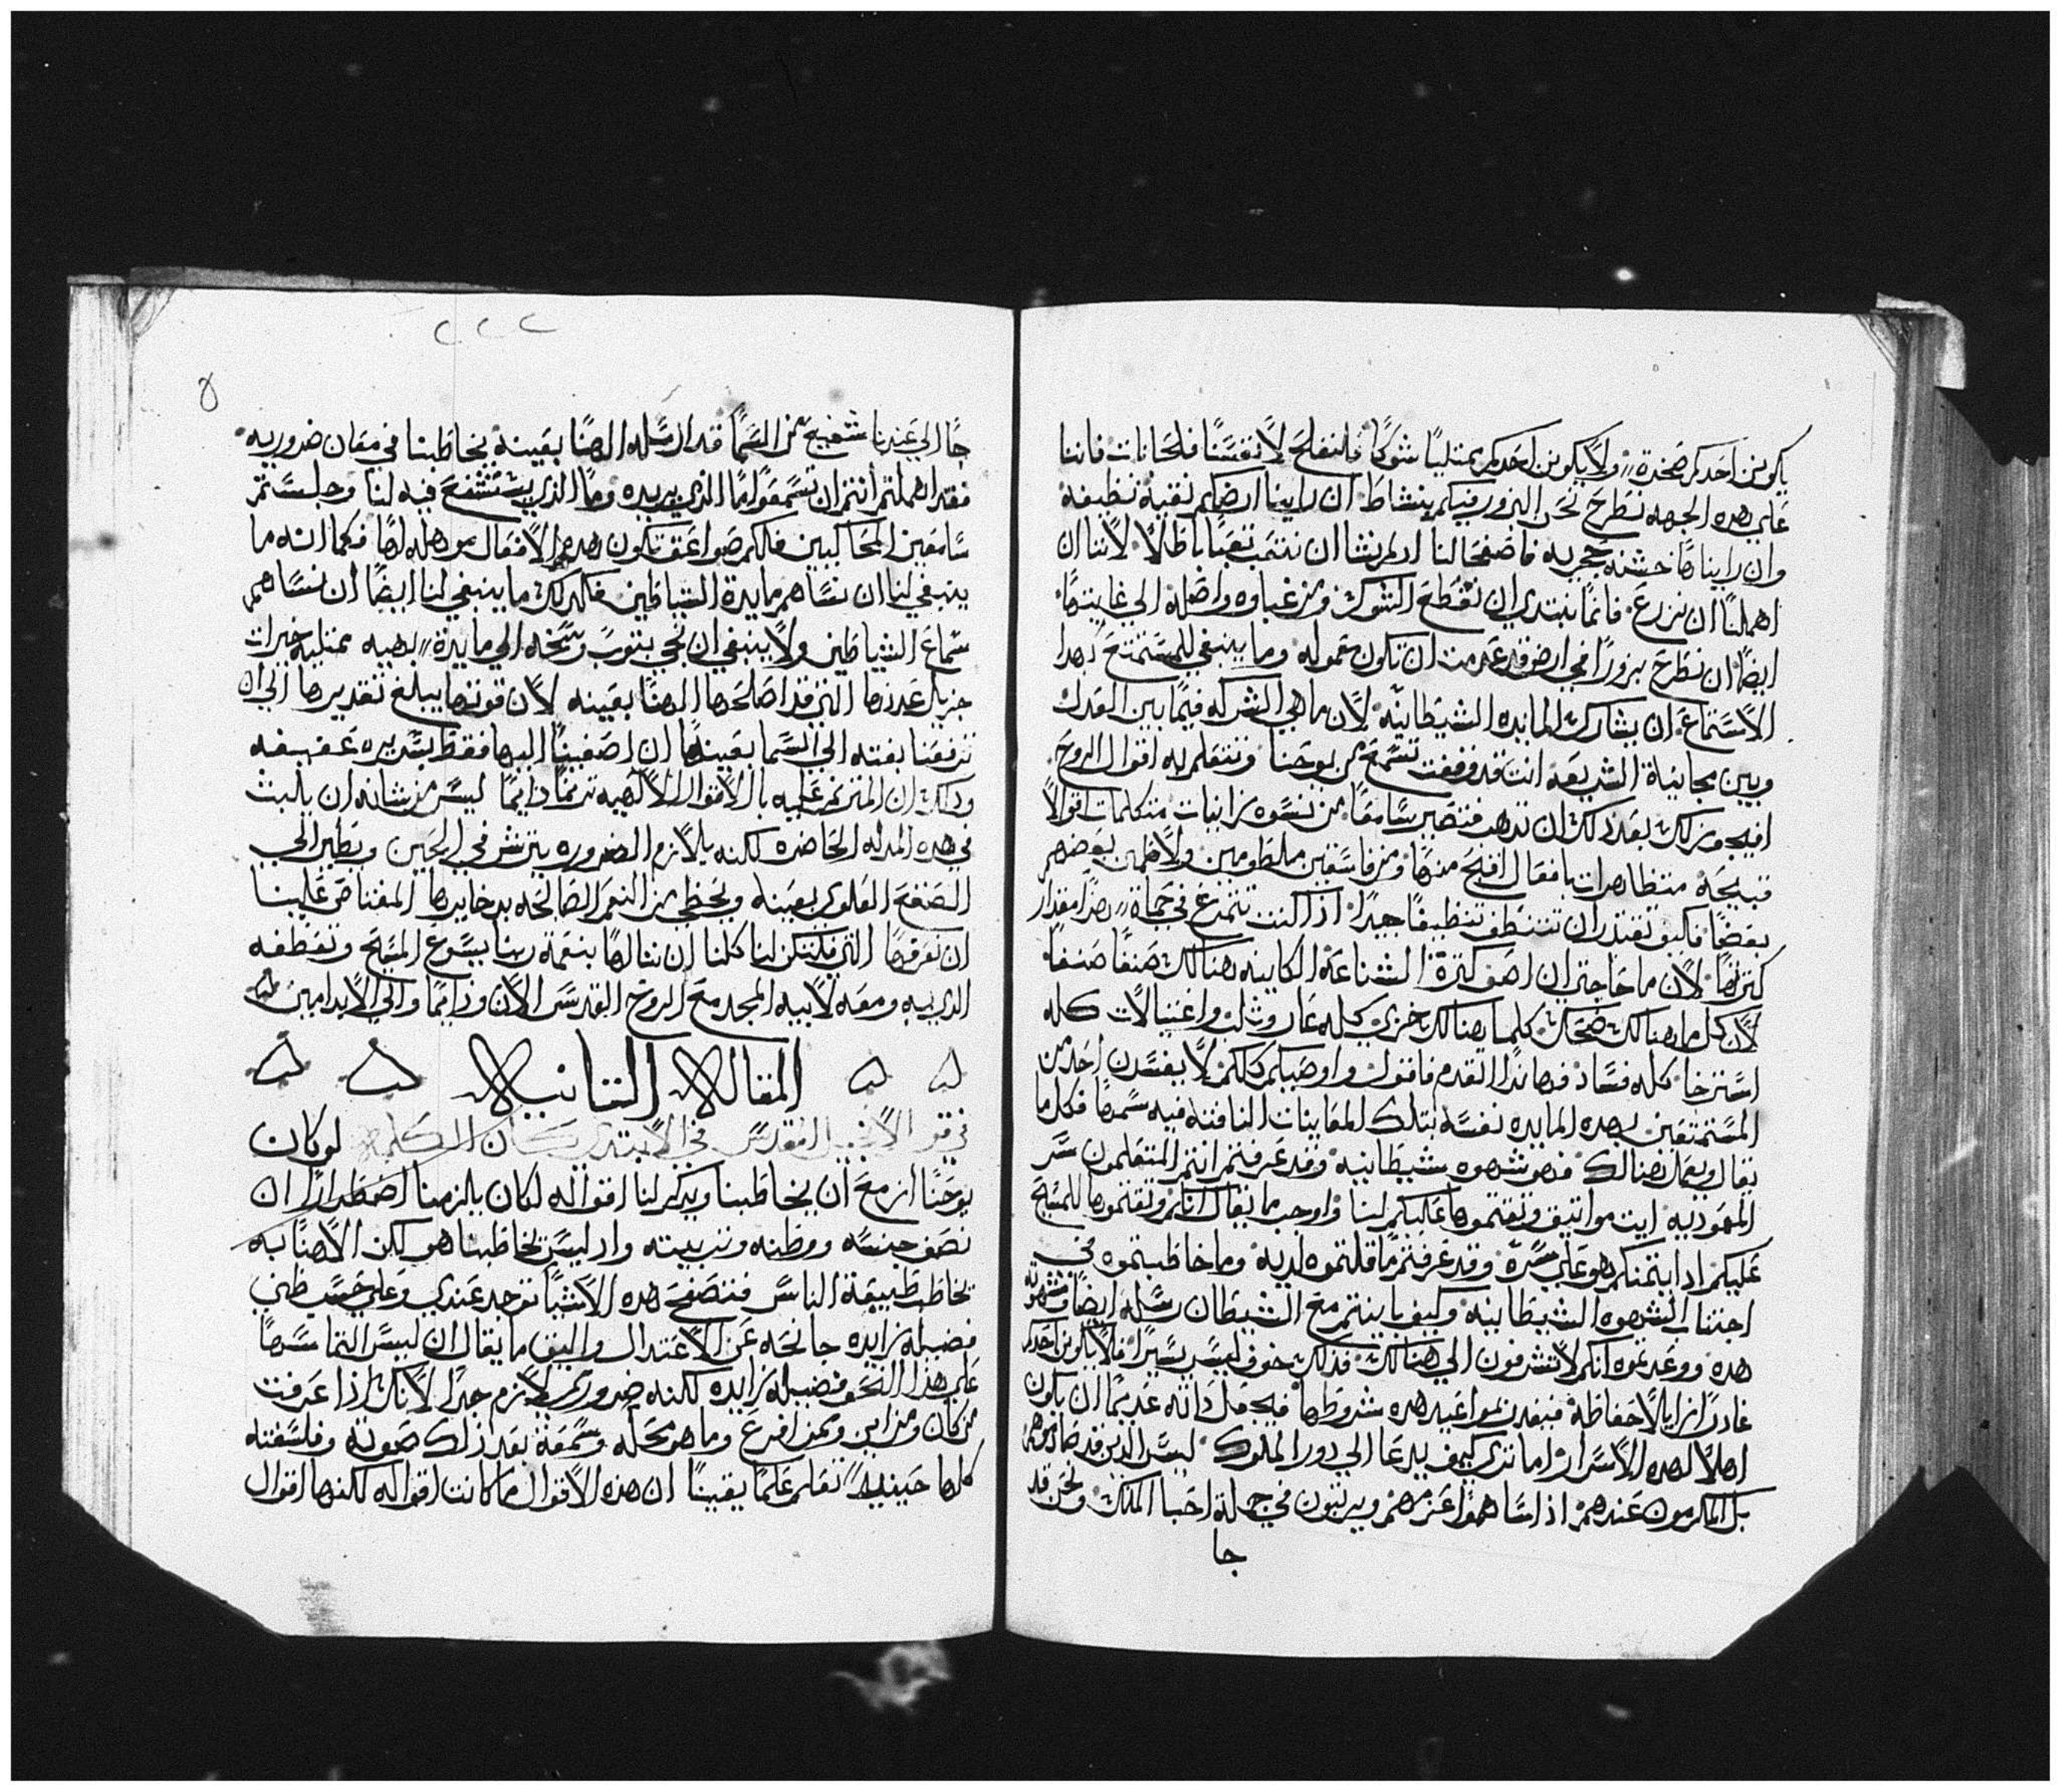 يكونن احدكم صخرة ولا يكونن احدكم ممتلياً شوكاً فلنفلح لانفسنا فلحانات فاننا
علي هده الجهه نطرح نحن البزور فيكم بنشاط ان راينا ارضكم نقيه نظيفه
وان رايناها خشنه حجريه فاصفحوا لنا ادلم نشا ان نتعب تعباً باطلاً لاننا ان
اهملنا ان نزرع فانما نبتدي ان نقطع الشوك ومن غباوه واصله الي غايتها
ايضاً ان نطرح بزوراً في ارض قد عدمت ان تكون معموله وما ينبغي للمستمتع بهدا
الاستماع ان يشارك المايده الشيطانيه لان ما هي الشركه فيما بين العدل
وبين مجانبة الشريعه انت قد وقفت تسمع من يوحنا وتتعلم به اقوال الروح
افيجوز لك بعد دلك ان تدهب فتصير سامعاً من نسوه زانيات متكلمات اقوالاً
قبيحه متظاهرات بافعال اقبح منها ومن فاسقين ملطومين ولاطمين بعضهم
بعضاً فكيف تقتدر ان تتنظف تنظيفاً جيداً اذا كنت تتمرغ في حماة هدا مقدار
كثرتها لان ما حاجتي ان اصف كثرة الشناعة الكاينه هنالك صنفاً صنفاً
لان كل ما هنالك ضحك كلما هنالك خزي كله عار وثلب واغتيالات كله
استرخا كله فساد فها ندا اتقدم فاقول واوصيكم كلكم لا يفسدن احد من
المستمتعين بهده المايده نفسه بتلك المعاينات النافثه فيه سمها فكل ما
يقال ويعمل هنالك فهو شهوه شيطانيه وقد عرفتم انتم المتعلمون سر
المعموديه ايت مواتيق وتقتموها عليكم لنا واوجب ما يقال انكم وتقتموها للمسيح
عليكم ادا ايتمنكم هو علي سره وقد عرفتم ما قلتموه لديه وما خاطبتموه في
اجتناب الشهوه الشيطانيه وكيف باينتم مع الشيطان رسله ايضاً في شهوته
هده ووعدتموه انكم لا تشرفون الي هنالك فدلك خوف ليس يسيراً فلا يكونن احدكم
غادراً زايلاً حفاظه فيفقدن مواعيد هده شروطها فيجعل داته عديماً ان يكون
اهلاً لهده الاسرار اما تري كيف يدعا الي دور الملوك ليس الدين قد صادموهم
بل المكرمون عندهم اذا ساهموا عزمهم ويرتبون في جملة احبا الملك ونحن قد
جا
٢٢٢
جا الي عندنا شفيع من السما قد ارسله الهنا بعينه يخاطبنا في معان ضروريه
فقد اهملتم انتم ان تسمعوا ما الذي يريده وما الذي يستشفع فيه لنا وجلستم
سامعين المحاكيين فلكم صواعق تكون هده الافعال موهله لها فكما انه ما
ينبغي لنا ان نساهم مايدة الشياطين فكدلك ما ينبغي لنا ايضاً ان نساهم
سماع الشياطين ولا ينبغي ان نجي بتوب وسخه الي مايدة بهيه ممتليه خيرات
جزيل عددها التي قد اصلحها الهنا بعينه لان قوتها يبلغ تقديرها الي ان
ترفعنا بغته الي السما بعينها ان اصغينا اليها فقط بسريره عفيفه
ودلك ان المترنم عليه بالاقوال الالاهيه ترنماً دايماً ليس من شانه ان يلبث
في هده المدله الحاضره لكنه يلازم الضروره يترنش في الحين ويطير الي
الصقع العلوي بعينه ويحظي من النعم الصالحه بدخايرها المفتاض علينا
ان نعرفها التي فليكن لنا كلنا ان ننالها بنعمة ربنا يسوع المسيح وتعطفه
الدي به ومعه لابيه المجد مع الروح القدس الان ودايماً والي الابد امين
المقاله التانيه
في قول الانجيل المقدس في الابتدي كان الكلمه لو كان
يوحنا ازمع ان يخاطبنا ويدكر لنا اقواله لكان يلزمنا اضطراراً ان
نصف جنسه ووطنه وتربيته واد ليس يخاطبنا هو لكن الاهنا به
يخاطب طبيعة الناس فنتصفح هده الاشيا توجد عندي وعلي حسب ظني
فضيله زايده جانحه عن الاعتدال واليق ما يقال ان ليس التماسها
علي هذا النحو فضيله زايده لكنه ضروري لازم جداً لانك اذا عرفت
من كان ومن اين وممن افرع وما هو محله وسمعت بعد ذلك صوته وفلسفته
كلها حينيد تعلم علماً يقيناً ان هذه الاقوال ما كانت اقواله لكنها اقوال